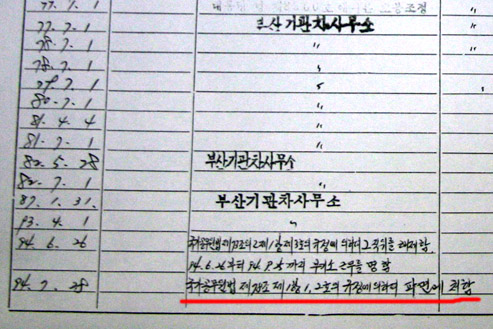 77. 7. 1 〃
77. 7. 1 부산기관차사무소 〃
78. 7. 1 〃
78. 7. 1 〃
79. 7. 1 〃
80. 7. 1 〃
81. 4. 4 〃
81. 7. 1 〃
82. 5. 28 부산기관차사무소
82. 7. 1 〃
87. 1. 31. 부산기관차사무소
93. 4. 1 〃
94. 6. 26 국가공무원법 제73조의2 제1항 제3호의 규정에 의하여 그 직위를 해제함
94. 6. 26부터 94. 9. 25까지 근무를 명함
94. 7. 28 국가공무원법 제78조 제1항 1, 2호의 규정에 의하여 파면에 처함